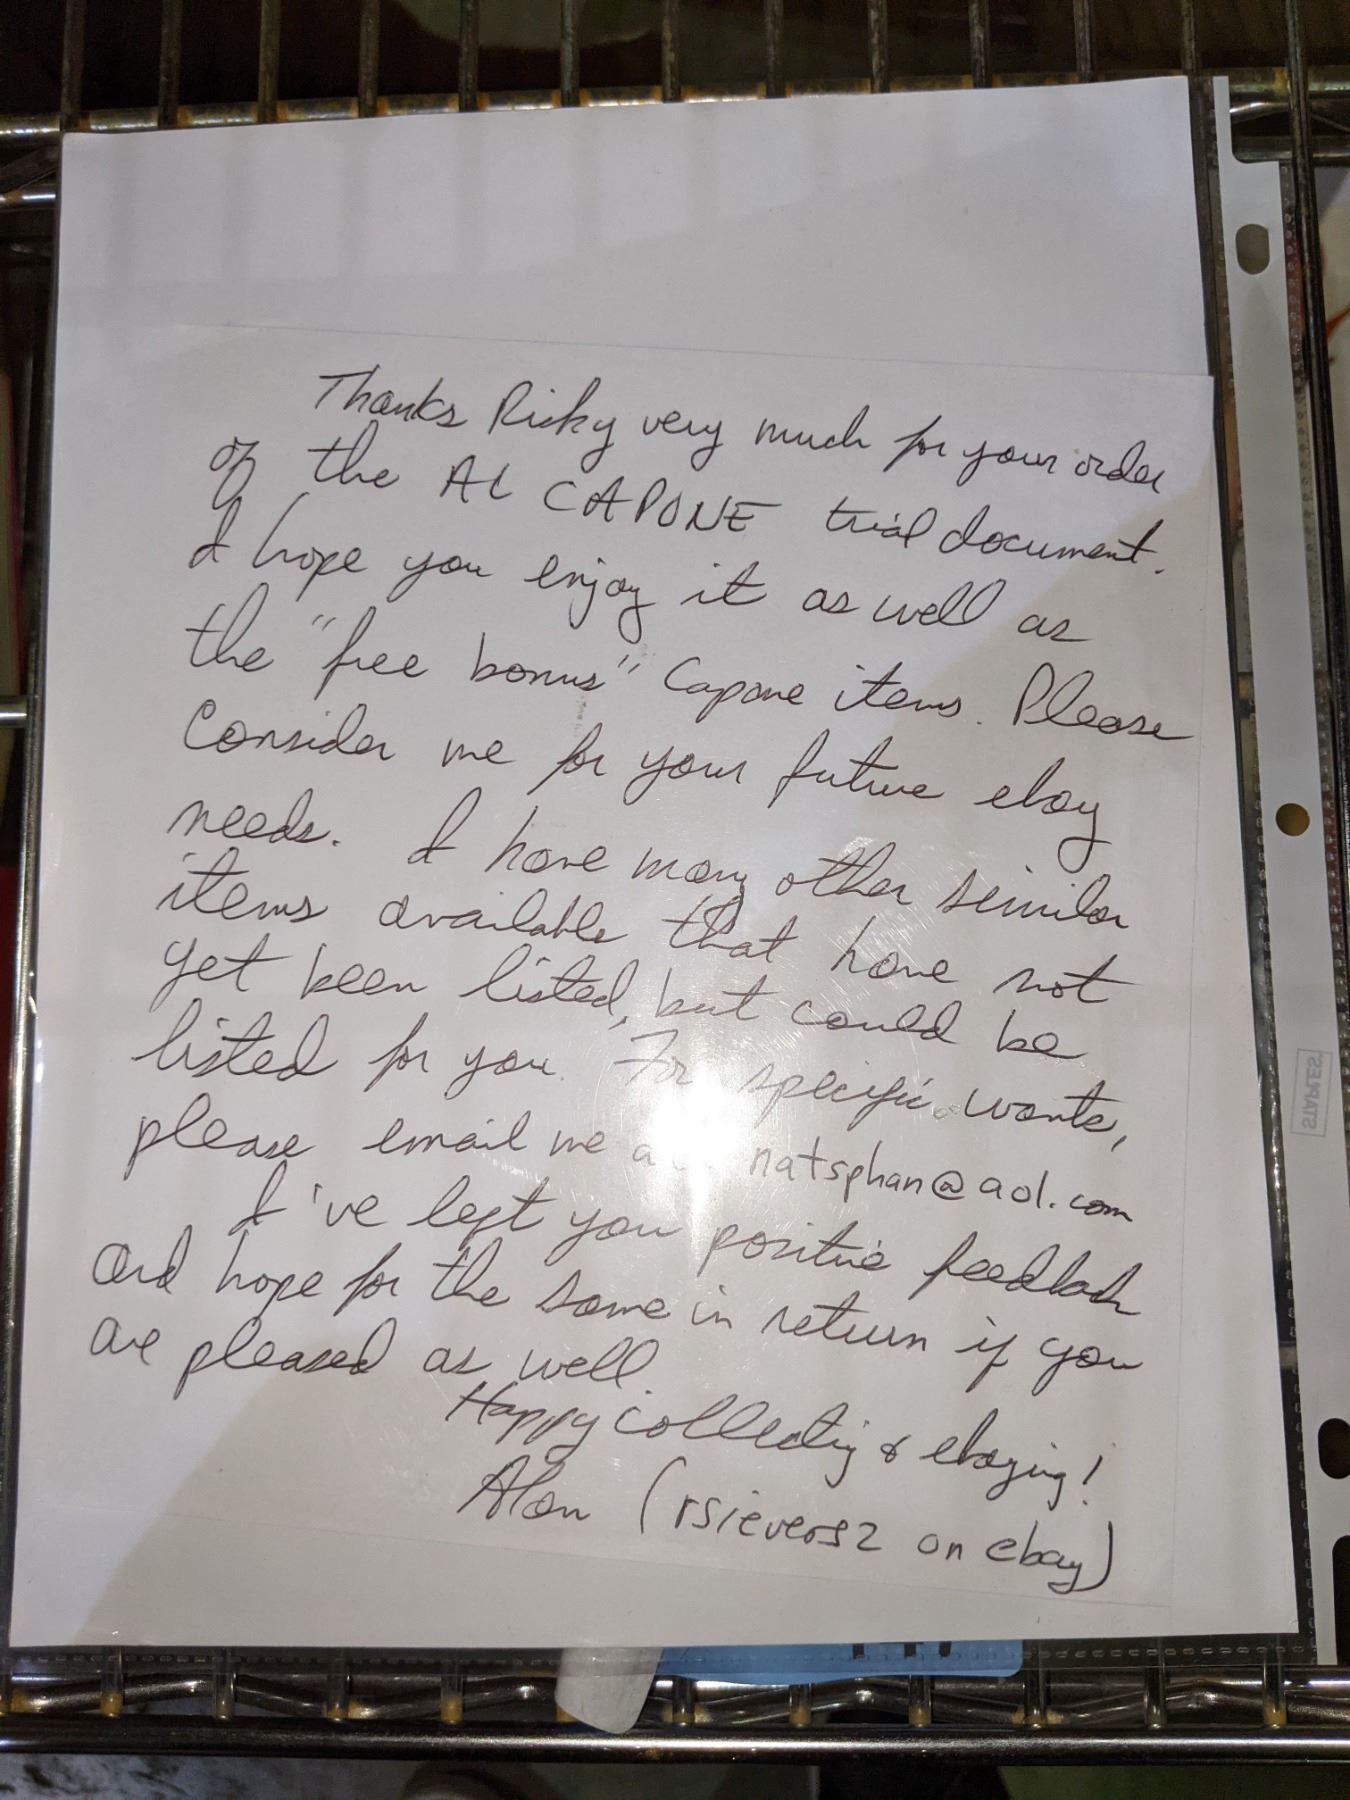 Thanks Ricky very much for your order
of the AL CAPONE trial document.
I hope you enjoy it as well as
the "free bonus" Capone items. Please
Consider me for your future ebay
needs. I have many other similar
items available that have not
yet been listed, but could be
listed for you. For specific wants,
please email me natsphan@aol.com
I've left you positive feedback
and hope for the same in return if you
are pleased as well.
Happy collecting & ebaying!
Alan (rsievers2 on ebay)
STAPLES